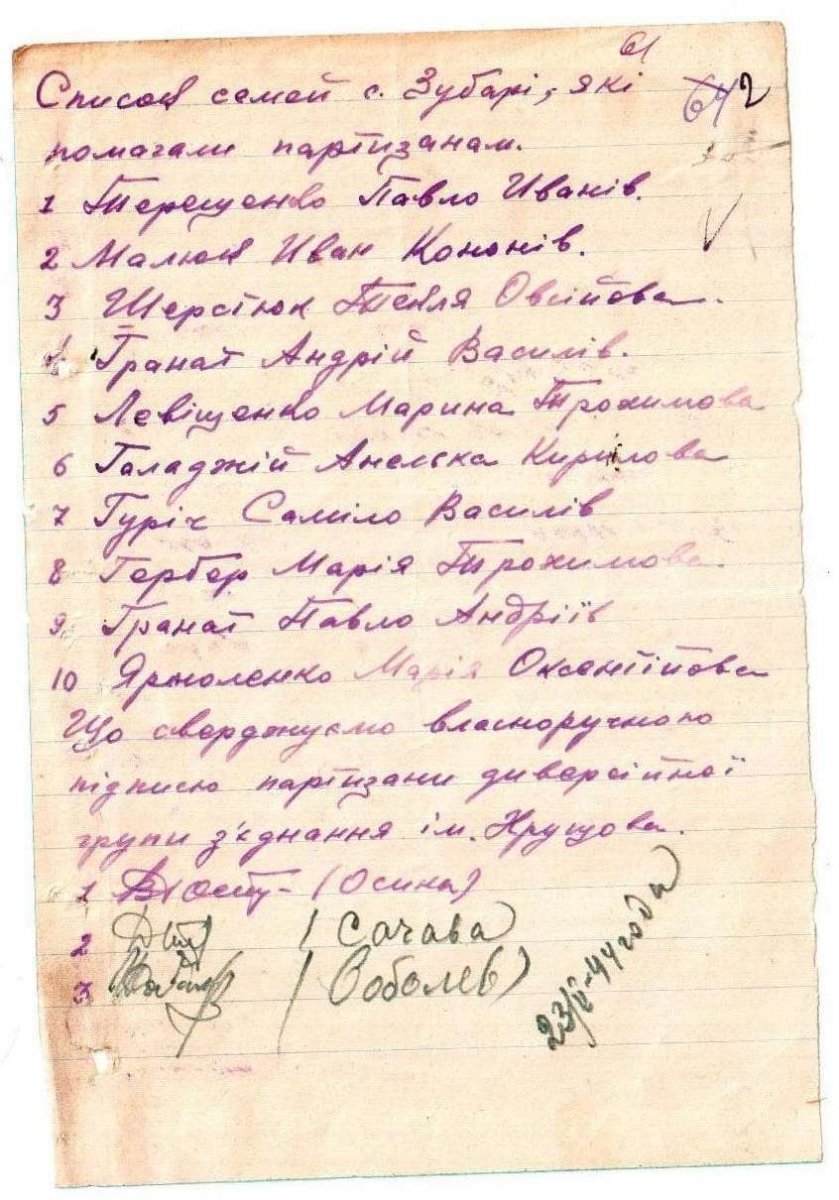 61
64 2
Список семей с. Зубарі, які
помагали партизанам.
1 Терещенко Павло Иванів.
2 Малюк Иван Кононів.
3 Шерстюк Текля Овсійова.
4 Гранат Андрій Василів.
5 Левіщенко Марина Трохимова
6 Галаджій Анелька Кирилова
7 Гуріч Саміло Василів
8 Гербер Марія Трохимова.
9 Гранат Павло Андріїв
10 Ярмоленко Марія Оксентійова
Що сверджуємо власноручною
підписю партизани диверсійної
групи з'єднання ім. Хрущова.
1 (Осика)
2 (Сачава)
3 (Соболев)
23/V-44 года